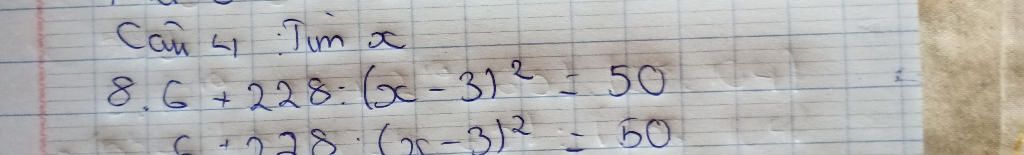 Câu 4 : Tìm x
8.6 + 228 : (x - 3)² = 50
6 + 228 : (x - 3)² = 50